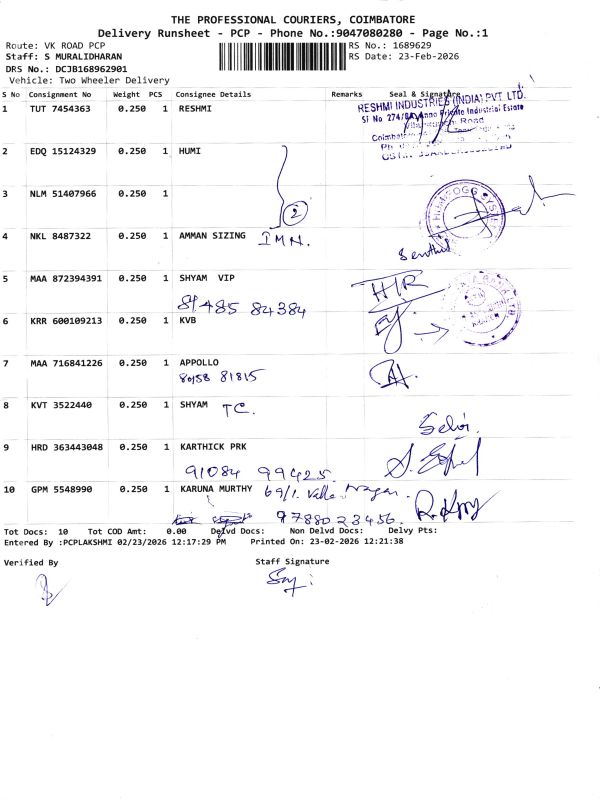 THE PROFESSIONAL COURIERS, COIMBATORE
Delivery Runsheet - PCP - Phone No.:9047080280 - Page No.:1
Route: VK ROAD PCP RS No.: 1689629
Staff: S MURALIDHARAN RS Date: 23-Feb-2026
DRS No.: DCJB168962901
Vehicle: Two Wheeler Delivery
S No Consignment No Weight PCS Consignee Details Remarks Seal & Signature
1 TUT 7454363 0.250 1 RESHMI
RESHMI INDUSTRIES (INDIA) PVT. LTD.
2 EDQ 15124329 0.250 1 HUMI
3 NLM 51407966 0.250 1
2
4 NKL 8487322 0.250 1 AMMAN SIZING IMN.
Senthil
5 MAA 872394391 0.250 1 SHYAM VIP
H/R
84485 84384
6 KRR 600109213 0.250 1 KVB
7 MAA 716841226 0.250 1 APPOLLO
80158 81815
8 KVT 3522440 0.250 1 SHYAM TC.
Selvi.
9 HRD 363443048 0.250 1 KARTHICK PRK
91084 99425
10 GPM 5548990 0.250 1 KARUNA MURTHY 69/1. Nagar.
9788023456.
Tot Docs: 10 Tot COD Amt: 0.00 Delvd Docs: Non Delvd Docs: Delvy Pts:
Entered By :PCPLAKSHMI 02/23/2026 12:17:29 PM Printed On: 23-02-2026 12:21:38
Verified By Staff Signature